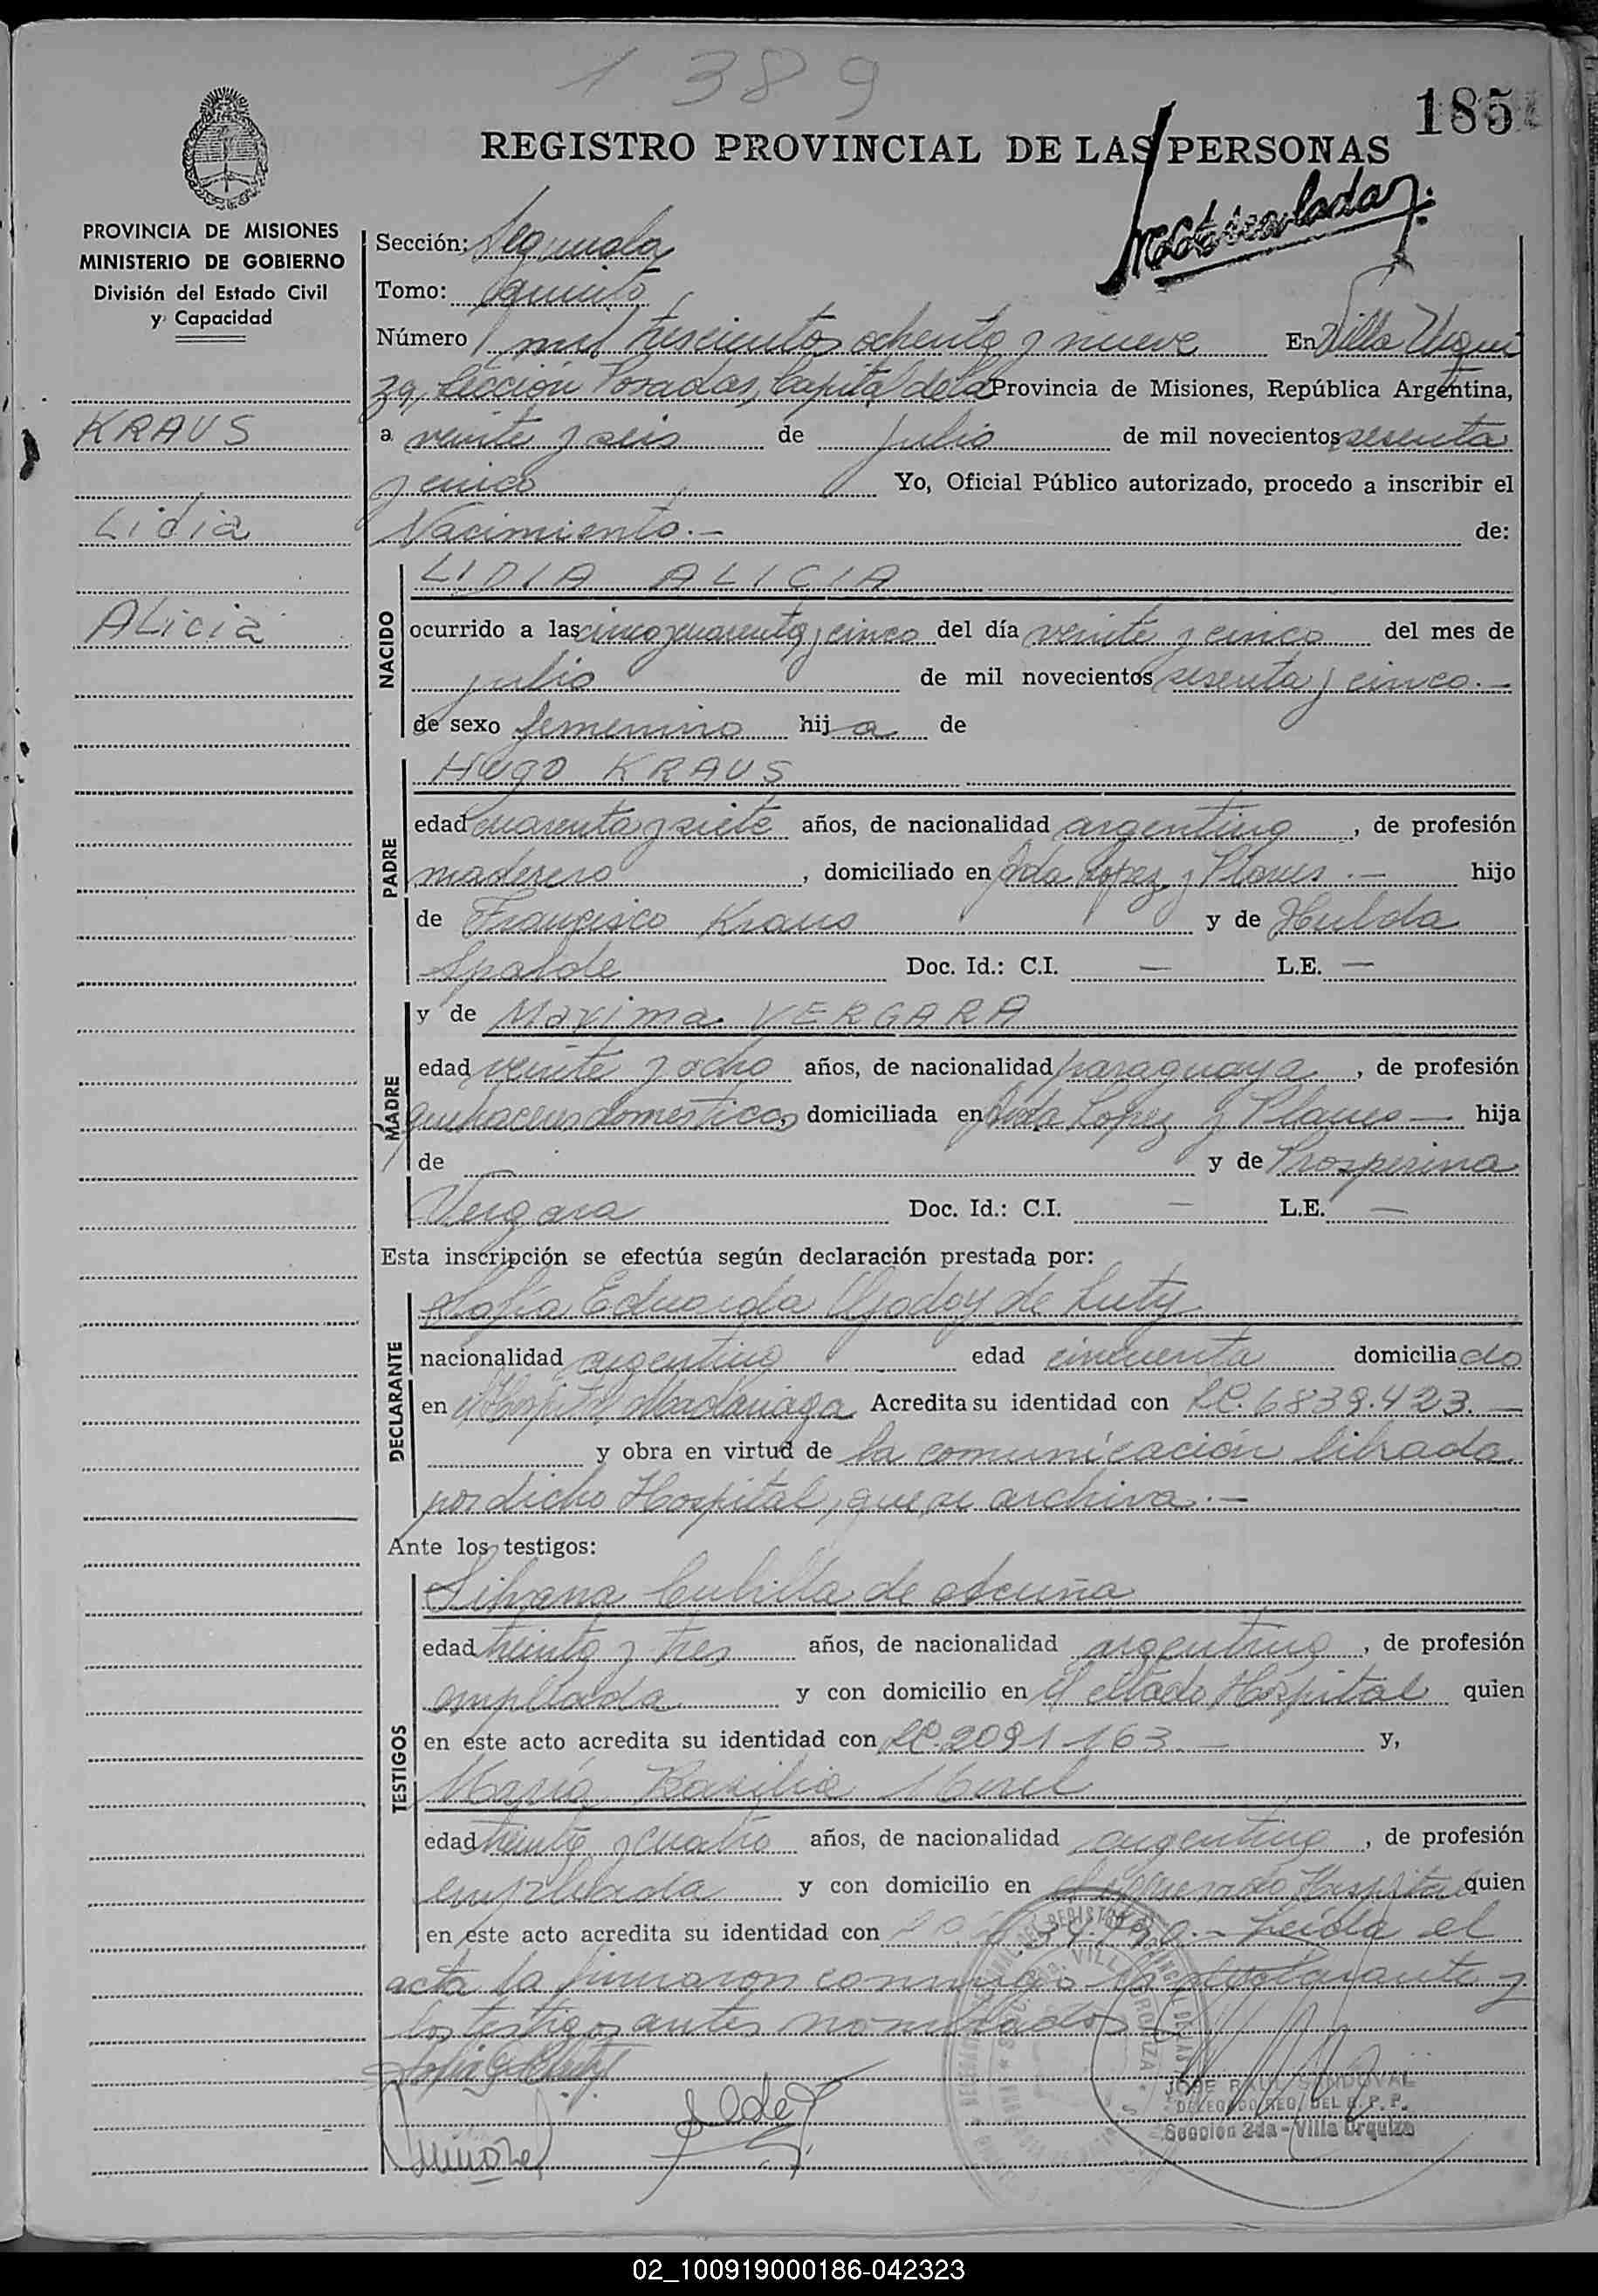 1389
185
REGISTRO PROVINCIAL DE LAS PERSONAS
PROVINCIA DE MISIONES
MINISTERIO DE GOBIERNO
División del Estado Civil
y Capacidad
KRAUS
Lidia
ALicia
Sección: Segunda
Tomo: Quinto
Número mil trescientos ochenta y nueve En Villa Urqui
za, Sección Posadas, Capital de la Provincia de Misiones, República Argentina,
a veinte y seis de julio de mil novecientos sesenta
y cinco Yo, Oficial Público autorizado, procedo a inscribir el
Nacimiento.- de:
NACIDO
LIDIA ALICIA
ocurrido a las cinco y cuarenta y cinco del día veinte y cinco del mes de
julio de mil novecientos sesenta y cinco.-
de sexo femenino hija de
PADRE
Hugo KRAUS
edad cuarenta y siete años, de nacionalidad argentino, de profesión
maderero, domiciliado en Avda Lopez y Planes.- hijo
de Francisco Kraus y de Hulda
Spalde Doc. Id.: C.I. — L.E. —
MADRE
y de Maxima VERGARA
edad veinte y ocho años, de nacionalidad paraguaya, de profesión
quehaceres domesticos, domiciliada en Avda Lopez y Planes — hija
de — y de Prosperina
Vergara Doc. Id.: C.I. — L.E. —
Esta inscripción se efectúa según declaración prestada por:
DECLARANTE
Sofía Eduarda Godoy de Luty
nacionalidad argentina edad cincuenta domiciliado
en el Hospital Madariaga Acredita su identidad con LC. 6839.423.-
y obra en virtud de la comunicación librada
por dicho Hospital, que se archiva.-
Ante los testigos:
TESTIGOS
Silvana Cubilla de Acuña
edad treinta y tres años, de nacionalidad argentina, de profesión
empleada y con domicilio en el citado Hospital quien
en este acto acredita su identidad con LC. 2091163.- y,
María Basilia
edad treinta y cuatro años, de nacionalidad argentina, de profesión
empleada y con domicilio en el Hospital quien
en este acto acredita su identidad con Leída el
acta la firmaron conmigo la declarante y
los testigos antes nombrados
JOSE RAUL SANDOVAL
DELEGADO REG. DEL R. P. P.
Sección 2da - Villa Urquiza
02_100919000186-042323